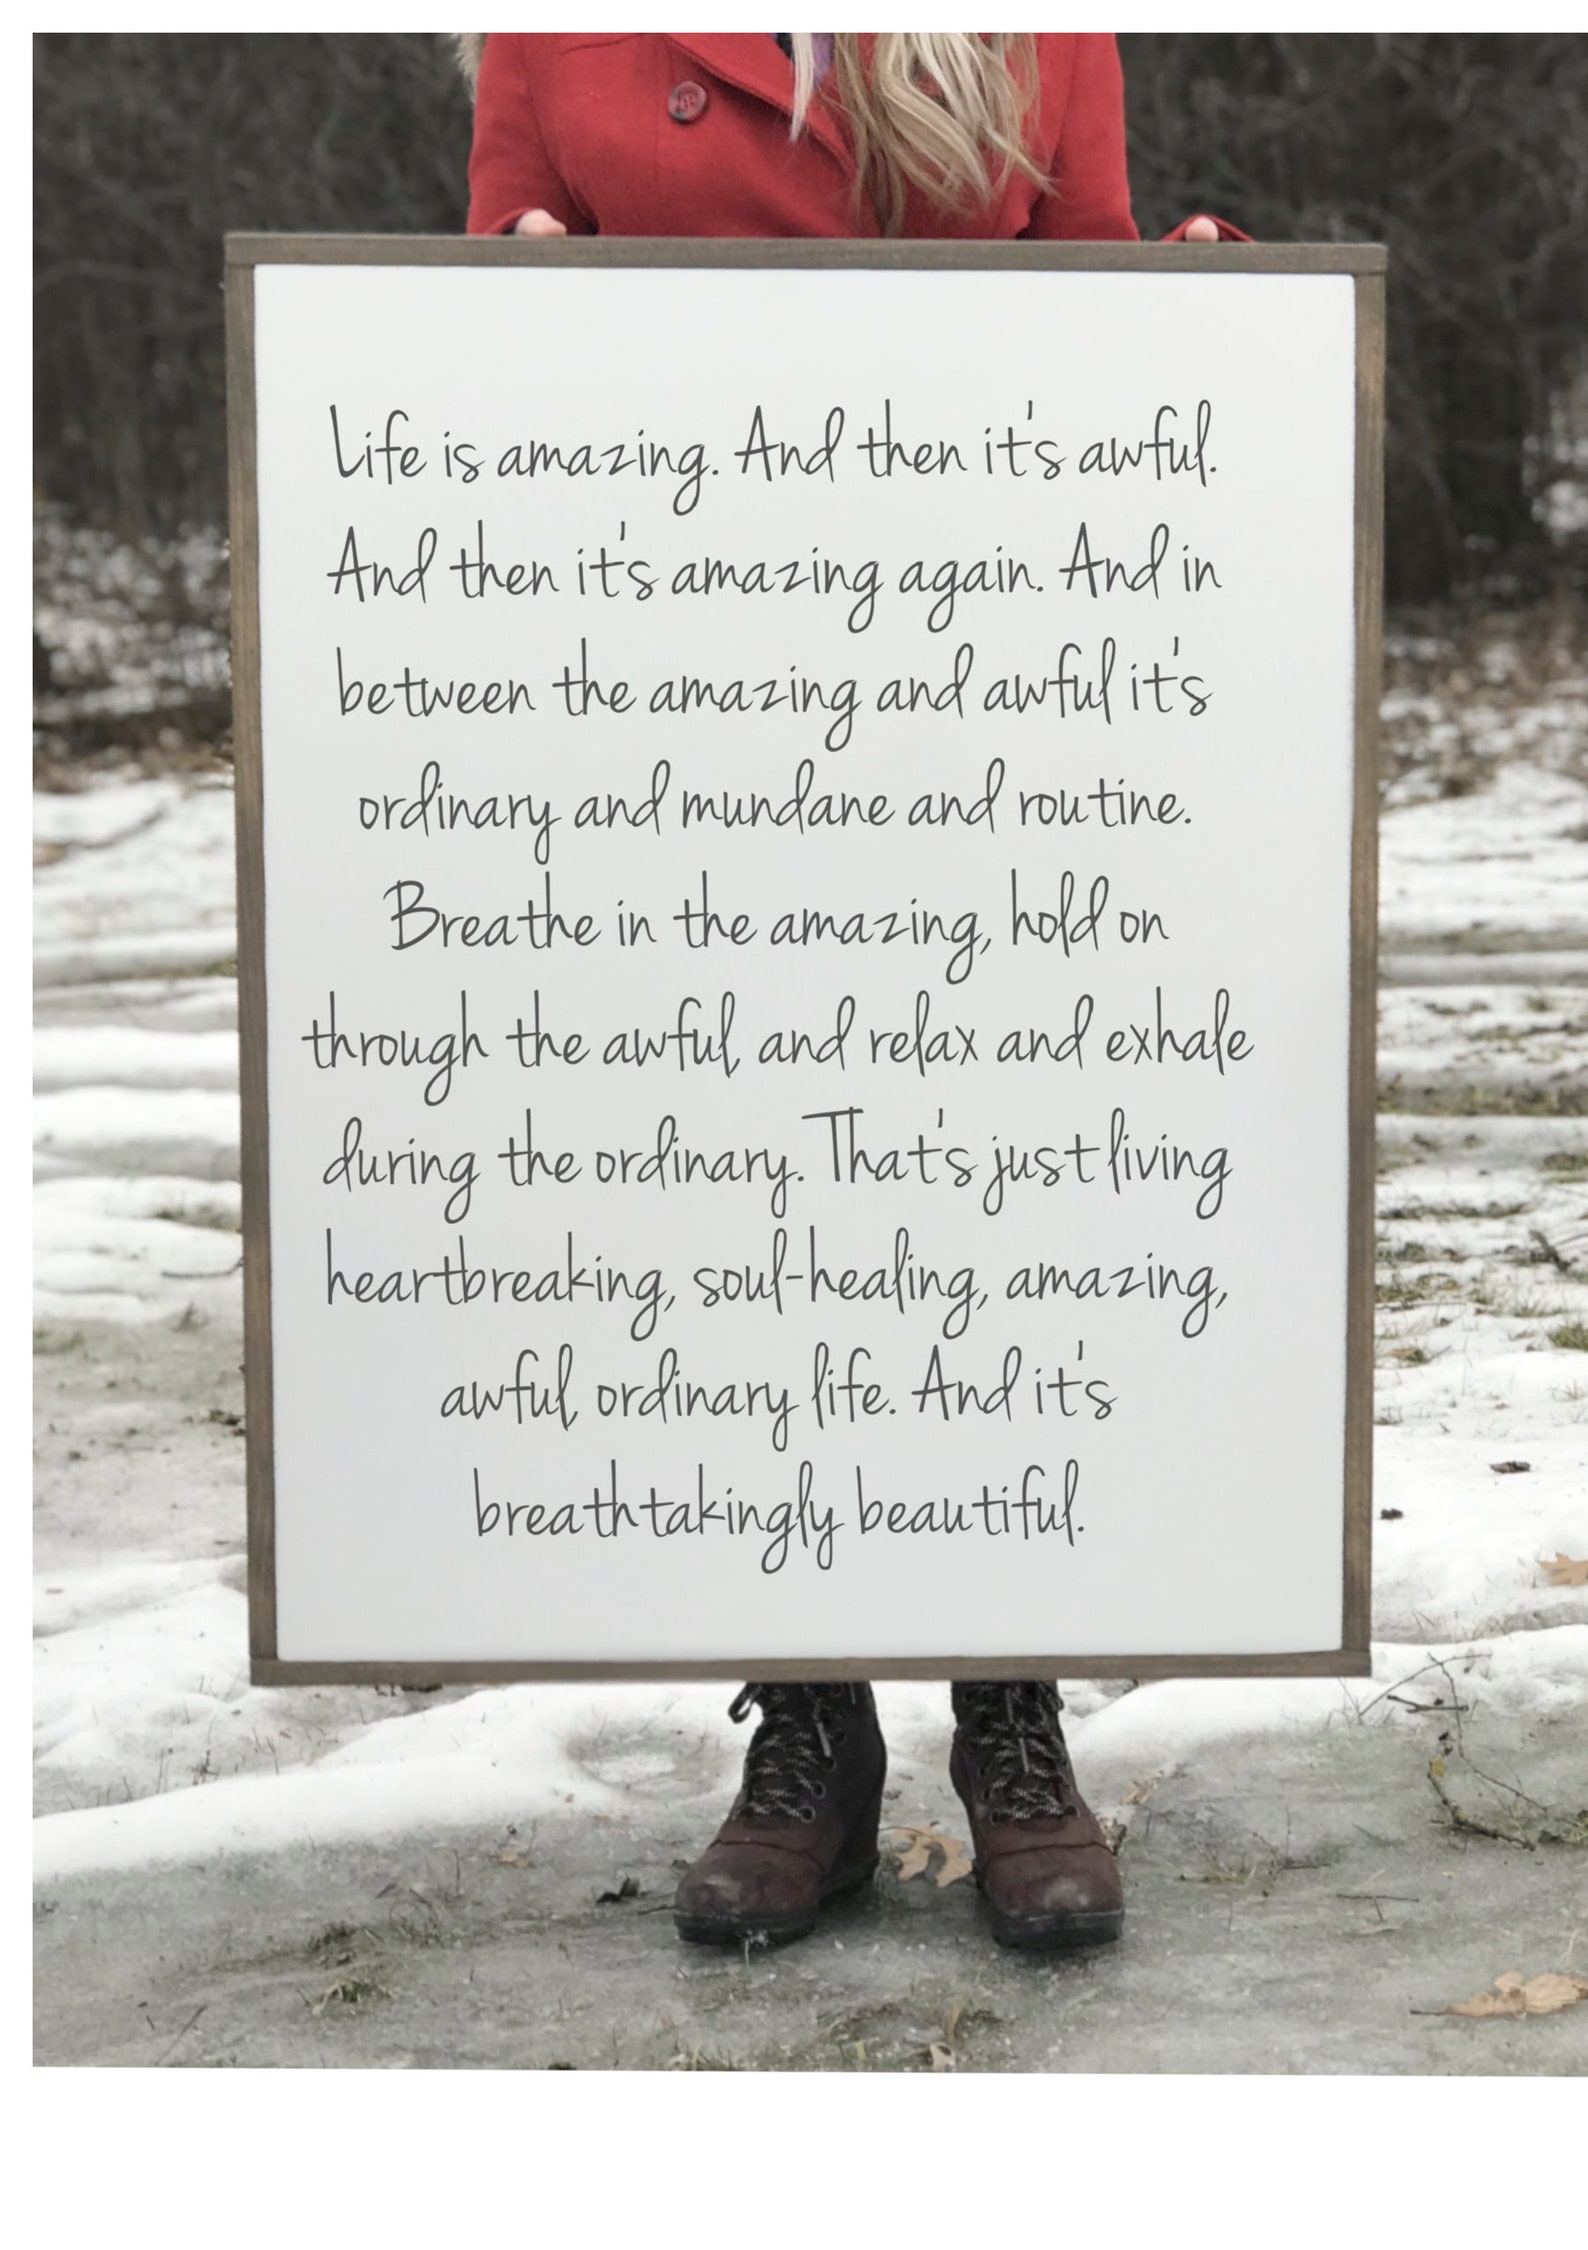 Life is amazing. And then it's awful.
And then it's amazing again. And in
between the amazing and awful it's
ordinary and mundane and routine.
Breathe in the amazing, hold on
through the awful, and relax and exhale
during the ordinary. That's just living
heartbreaking, soul-healing, amazing,
awful, ordinary life. And it's
breathtakingly beautiful.